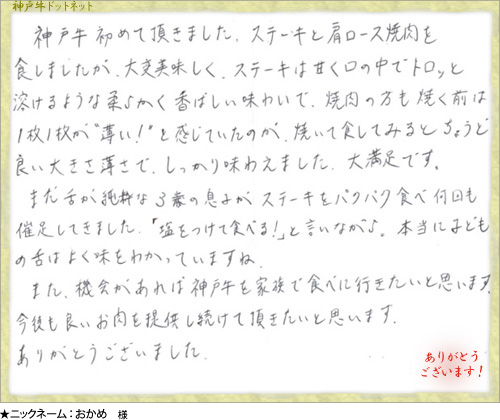 神戸牛ドットネット
神戸牛初めて頂きました。ステーキと肩ロース焼肉を
食しましたが、大変美味しく、ステーキは甘く口の中でトロッと
溶けるような柔らかく香ばしい味わいで、焼肉の方も焼く前は
1枚1枚が"薄い!"と感じていたのが、焼いて食してみるとちょうど
良い大きさ薄さで、しっかり味わえました。大満足です。
まだ舌が純粋な3歳の息子が、ステーキをパクパク食べ何回も
催足してきました。「塩をつけて食べる!」と言いながら。本当に子ども
の舌はよく味をわかっていますね。
また、機会があれば神戸牛を家族で食べに行きたいと思います。
今後も良いお肉を提供し続けて頂きたいと思います。
ありがとうございました。
ありがとう
ございます!
★ニックネーム:おかめ 様